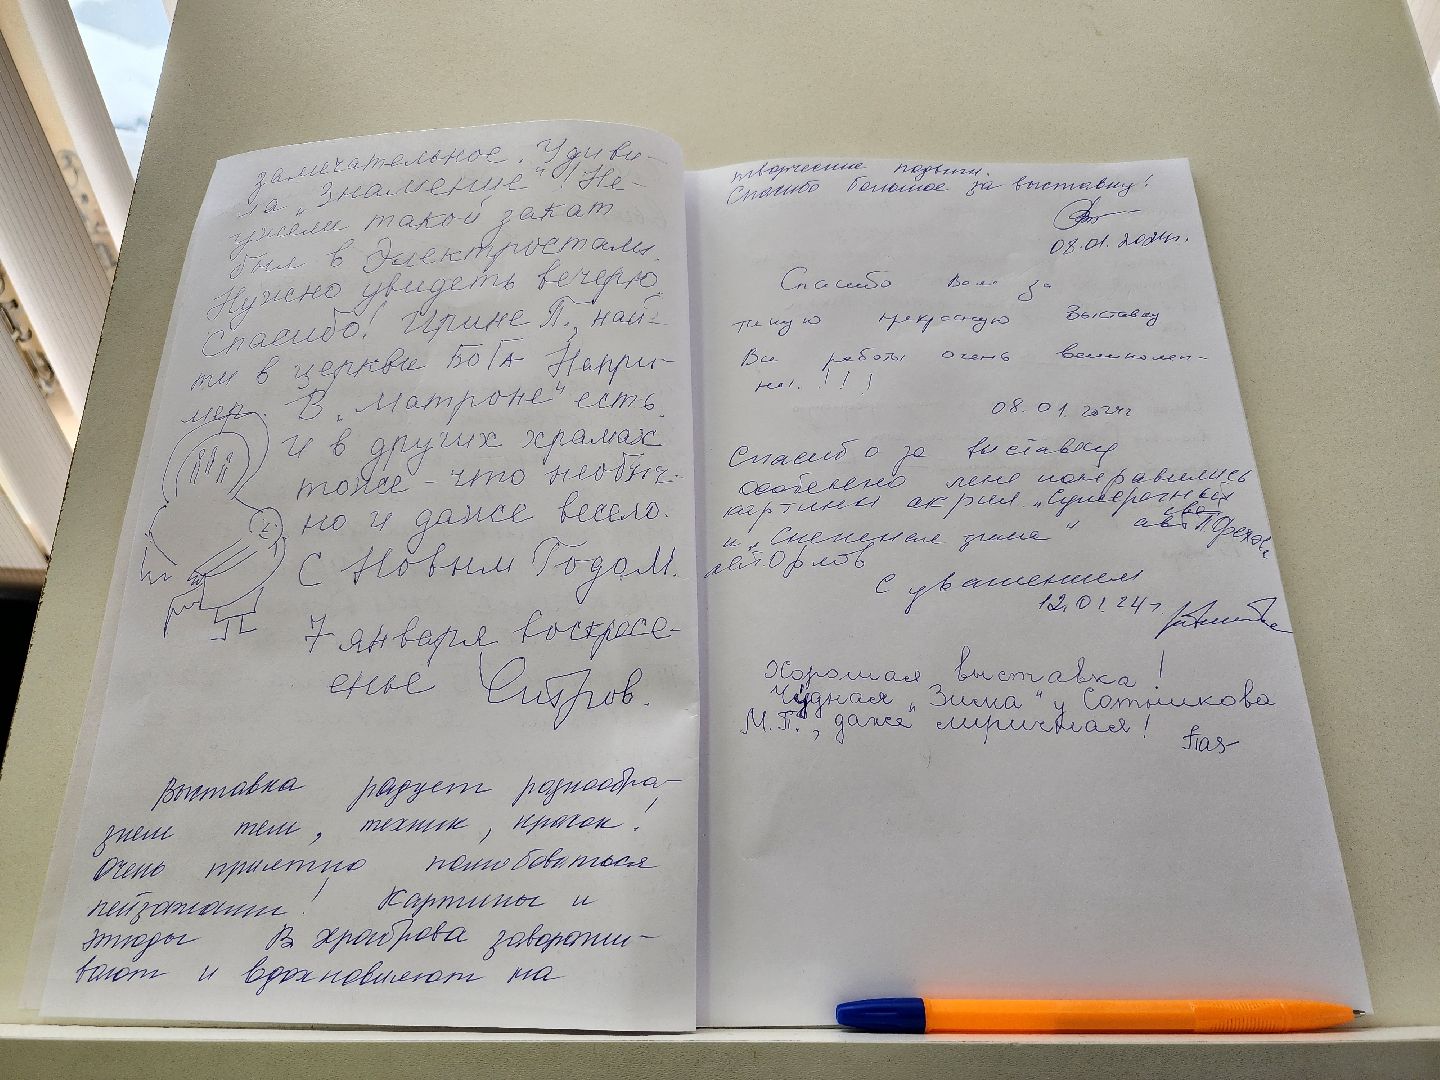 замечательное. Удиви-
ла „Знамение"! Не-
ужели такой закат
был в Электростали.
Нужно увидеть вечерю.
Спасибо! Ирине П., най-
ти в церкви БОГА Напри-
мер. В „Матроне" есть.
И в других храмах
тоже - что необыч-
но и даже весело.
С Новым Годом.
7 января воскресе-
енье
Выставка радует разнообра-
зием тем, техник, красок!
Очень приятно полюбоваться
пейзажами! Картины и
этюды В Храброва заворажи-
вают и вдохновляют на
творческие подвиги.
Спасибо большое за выставку!
08.01.2024г.
Спасибо Вам за
такую прекрасную выставку
Все работы очень великолеп-
ны. !!!
08.01.2024г
Спасибо за выставку
особенно мне понравились
картины акрил „Сумерочный
и „Снежная зима"
Орлов
С уважением
12.01.24г.
Хорошая выставка!
Чудная „Зима" у Сотникова
М.П., даже лиричная!